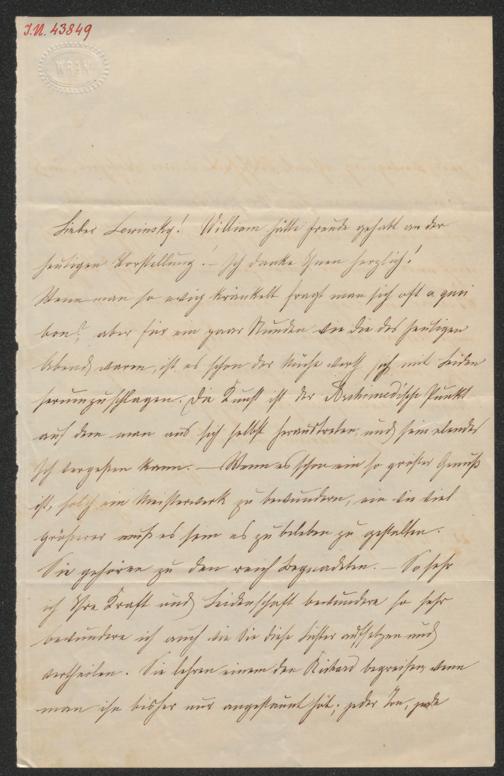 I.N. 43849
WRAY
Lieber Lewinsky! William hätte Freude gehabt an der
heutigen Vorstellung! – Ich danke Ihnen herzlich!
Wenn man so ewig kränkelt fragt man sich oft a quoi
bon?, aber für ein paar Stunden wie die des heutigen
Abends waren, ist es schon der Mühe werth sich mit Leiden
herumzuschlagen. Die Kunst ist der Archimedische Punkt
auf dem man aus sich selbst heraustreten, und sein elendes
Ich vergessen kann. – Wenn es schon ein so großer Genuß
ist, solch ein Meisterwerk zu bewundern, um wie viel
größerer muß es sein es zu beleben zu gestalten.
Sie gehören zu den reich Begnadeten. – So sehr
ich Ihre Kraft und Leidenschaft bewundere so sehr
bewundere ich auch wie Sie diese Lichter aufsetzen und
vertheilen. Sie lehren einem den Richard begreifen, wenn
man ihn bisher nur angestaunt hat. jeder Ton, jede